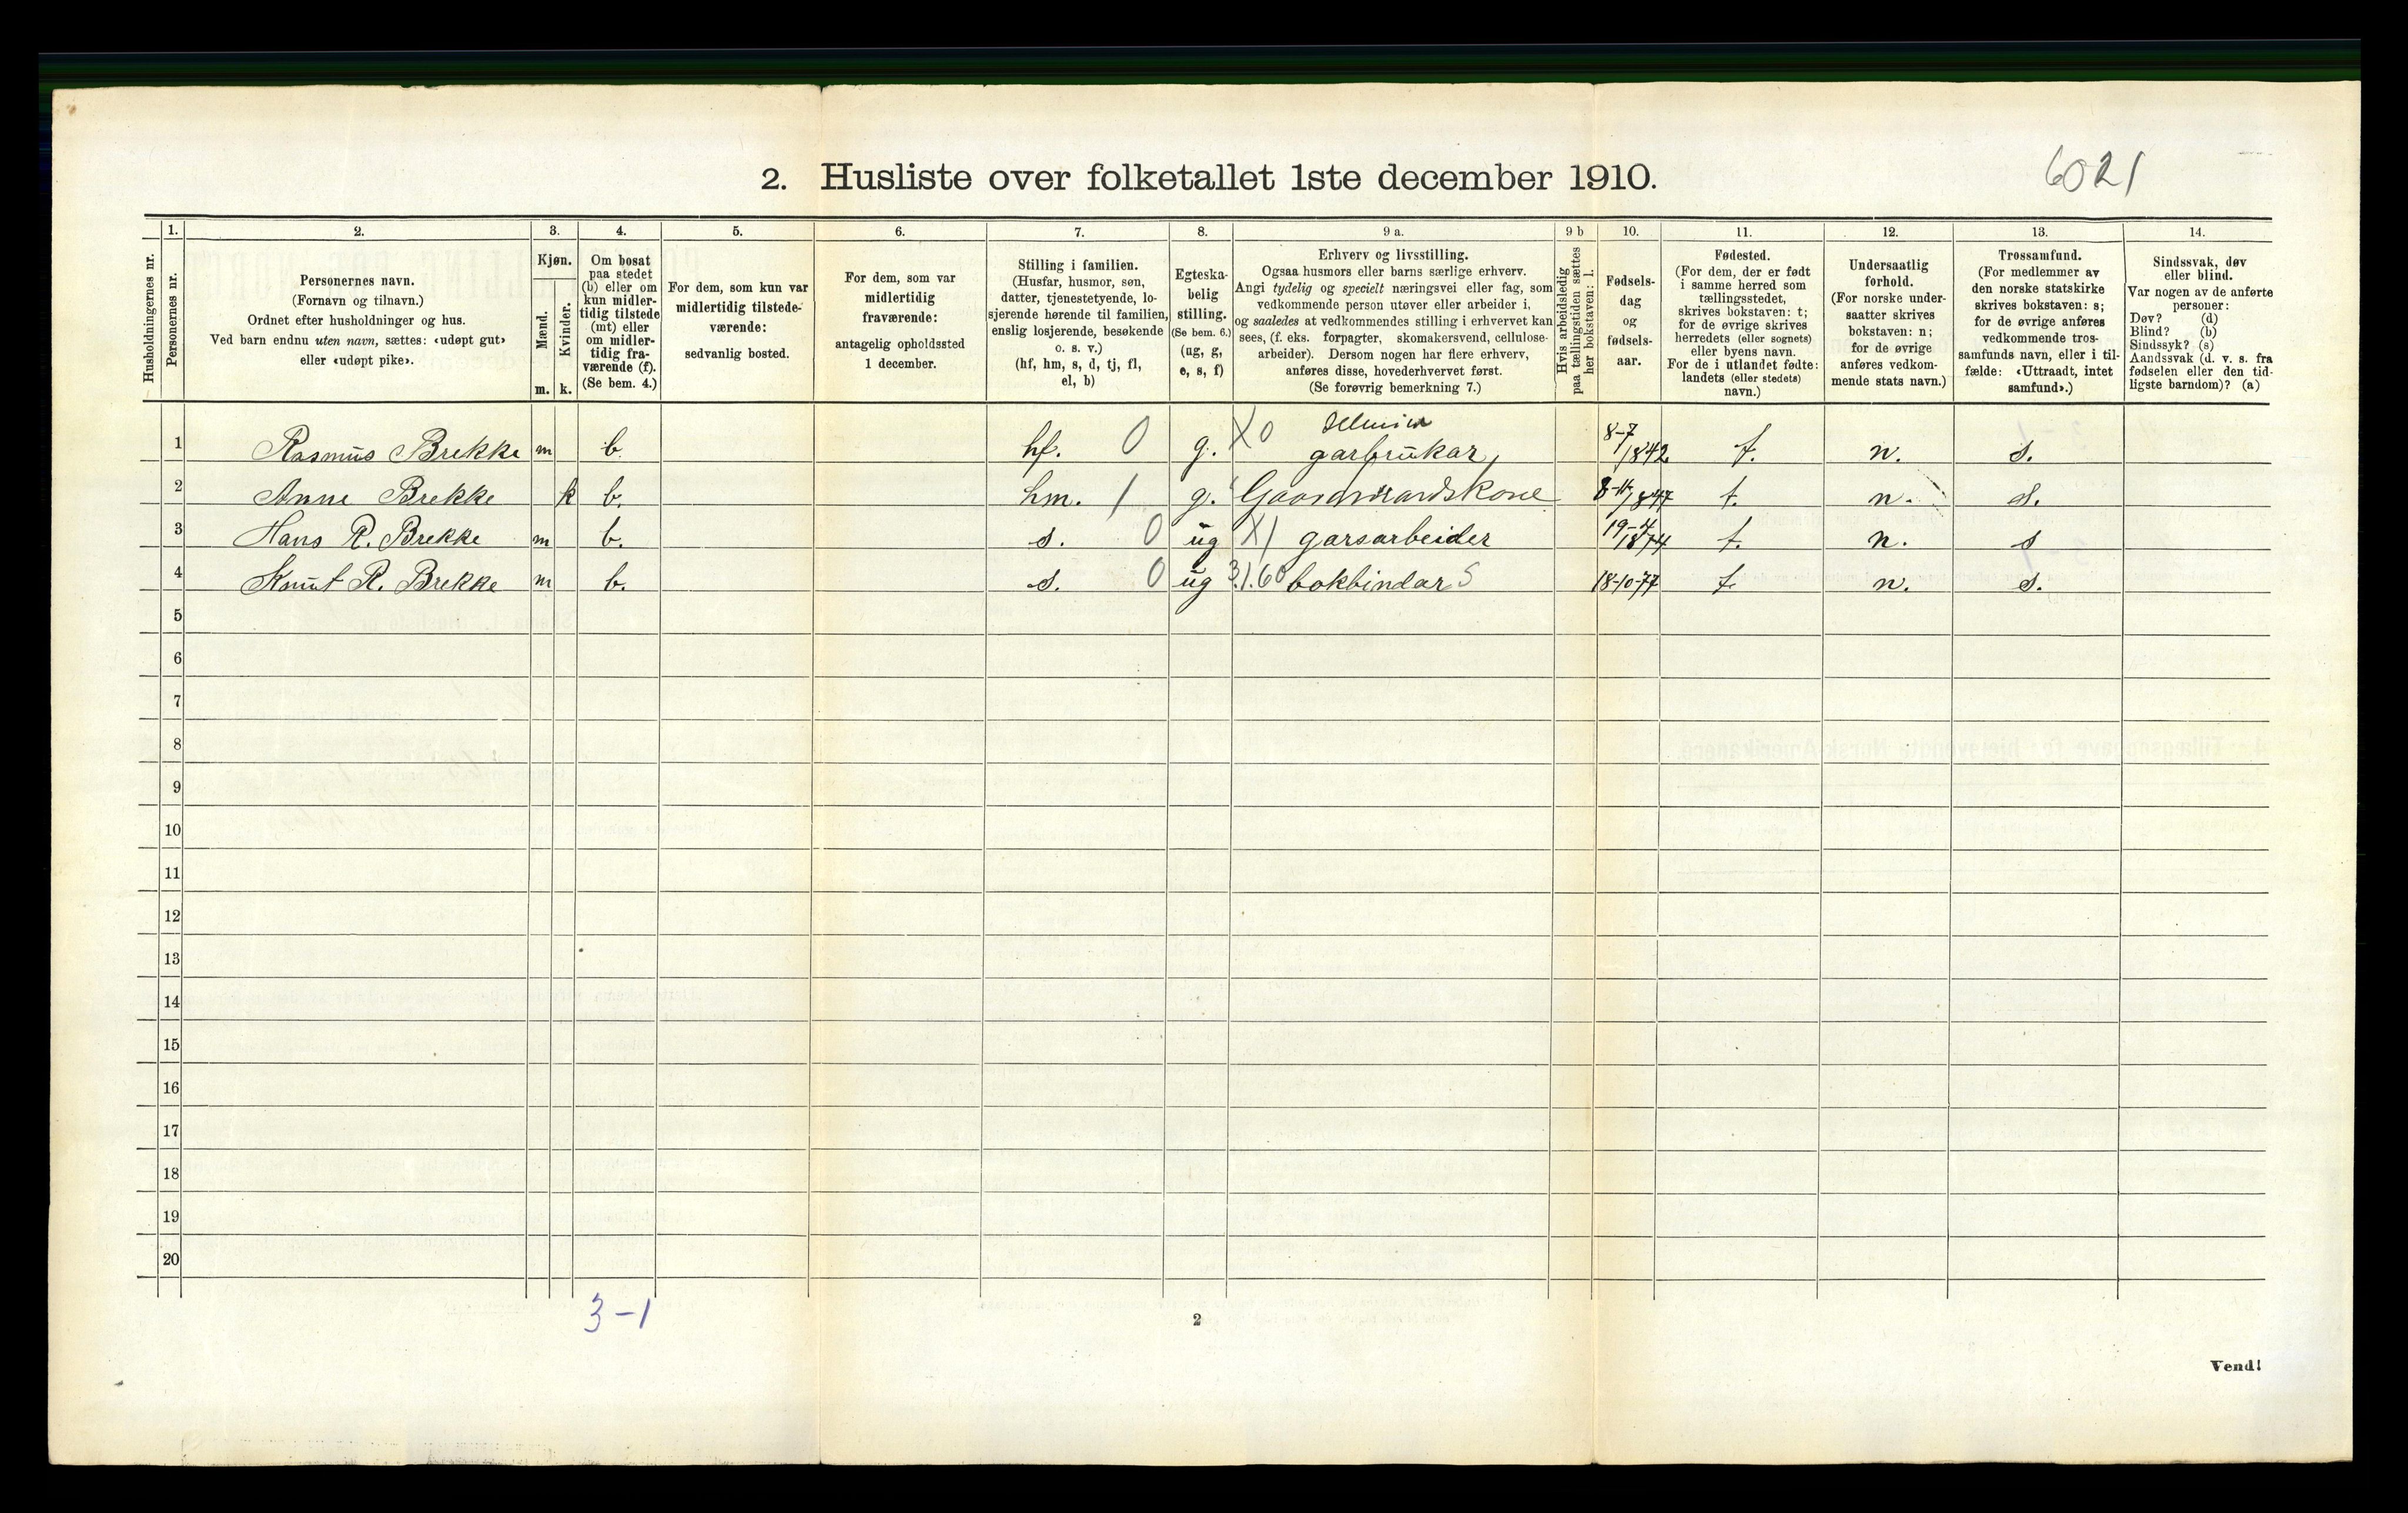 2. Husliste over folketallet 1ste december 1910.
6021
Husholdningernes nr.
1.
Personernes nr.
2.
Personernes navn.
(Fornavn og tilnavn.)
Ordnet efter husholdninger og hus.
Ved barn endnu uten navn, sættes: «udøpt gut»
eller «udøpt pike».
3.
Kjøn.
Mænd.
Kvinder.
m. k.
4.
Om bosat
paa stedet
(b) eller om
kun midler-
tidig tilstede
(mt) eller
om midler-
tidig fra-
værende (f).
(Se bem. 4.)
5.
For dem, som kun var
midlertidig tilstede-
værende:
sedvanlig bosted.
6.
For dem, som var
midlertidig
fraværende:
antagelig opholdssted
1 december.
7.
Stilling i familien.
(Husfar, husmor, søn,
datter, tjenestetyende, lo-
sjerende hørende til familien,
enslig losjerende, besøkende
o. s. v.)
(hf, hm, s, d, tj, fl,
el, b)
8.
Egteska-
belig
stilling.
(Se bem. 6.)
(ug, g,
e, s, f)
9 a.
Erhverv og livsstilling.
Ogsaa husmors eller barns særlige erhverv.
Angi tydelig og specielt næringsvei eller fag, som
vedkommende person utøver eller arbeider i,
og saaledes at vedkommendes stilling i erhvervet kan
sees, (f. eks. forpagter, skomakersvend, cellulose-
arbeider). Dersom nogen har flere erhverv,
anføres disse, hovederhvervet først.
(Se forøvrig bemerkning 7.)
9 b
Hvis arbeidsledig
paa tællingstiden sættes
her bokstaven: l.
10.
Fødsels-
dag
og
fødsels-
aar.
11.
Fødested.
(For dem, der er født
i samme herred som
tællingsstedet,
skrives bokstaven: t;
for de øvrige skrives
herredets (eller sognets)
eller byens navn.
For de i utlandet fødte:
landets (eller stedets)
navn.)
12.
Undersaatlig
forhold.
(For norske under-
saatter skrives
bokstaven: n;
for de øvrige
anføres vedkom-
mende stats navn.)
13.
Trossamfund.
(For medlemmer av
den norske statskirke
skrives bokstaven: s;
for de øvrige anføres
vedkommende tros-
samfunds navn, eller i til-
fælde: «Uttraadt, intet
samfund».)
14.
Sindssvak, døv
eller blind.
Var nogen av de anførte
personer:
Døv? (d)
Blind? (b)
Sindssyk? (s)
Aandssvak (d. v. s. fra
fødselen eller den tid-
ligste barndom)? (a)
1 Rasmus Brekke m b. hf. 0 g. X0 garbrukar, 8-7/1842 t. n. s.
2 Anne Brekke k b. hm. 1 g. Gaardmandskone 8-11/1847 t. n. s.
3 Hans R. Brekke m b. s. 0 ug X1 garsarbeider 19-4/1874 t. n. s
4 Knut R. Brekke m b. s. 0 ug 3.1.60 bokbindar S 18-10-77 t. n. s.
5
6
7
8
9
10
11
12
13
14
15
16
17
18
19
20
3-1
2
Vend!